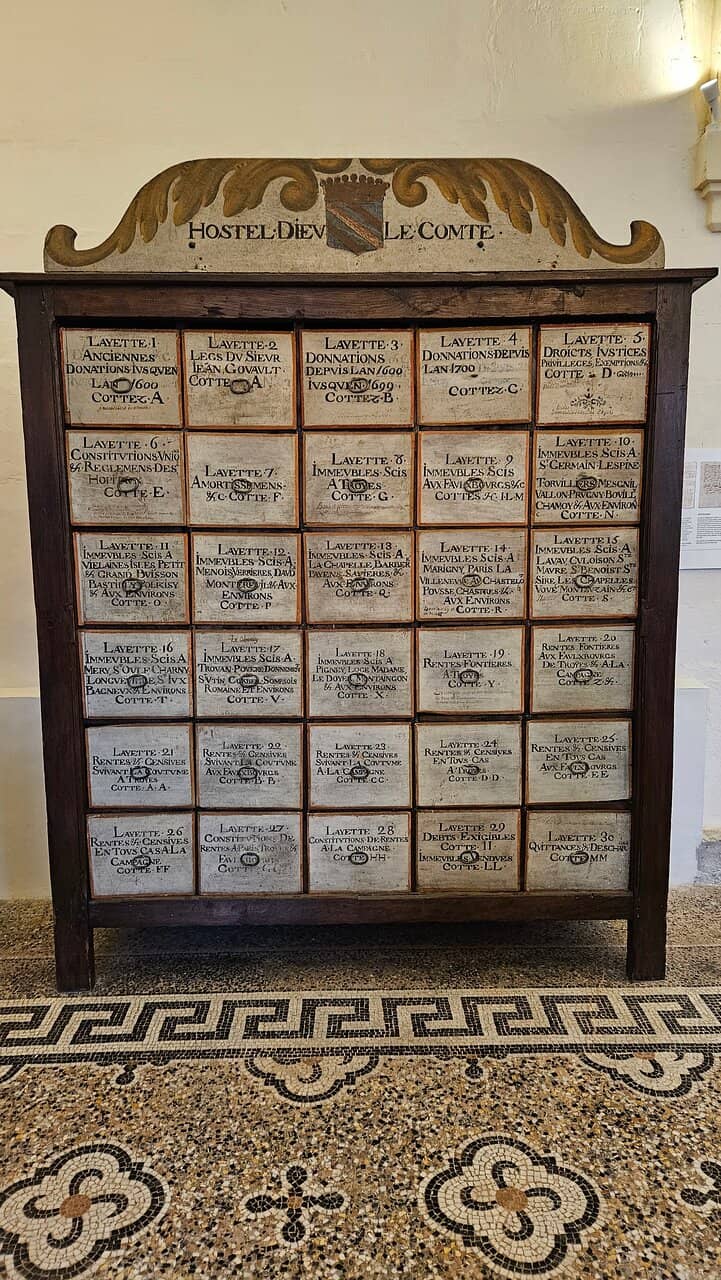 HOSTEL·DIEV LE·COMTE·
LAYETTE·1
ANCIENNES
DONATIONS IVSQVEN
LAN 1600
COTTEZ·A
LAYETTE·2
LEGS DV SIEVR
IEAN GOVAVLT
COTTE A
LAYETTE·3
DONNATIONS
DEPVIS LAN 1600
IVSQVEN 1699
COTTEZ·B
LAYETTE 4
DONNATIONS·DEPVIS
LAN 1700
COTTEZ·C
LAYETTE·5
DROICTS IVSTICES
PRIVILLEGES EXEMPTIONS
COTTE·D
LAYETTE·6
CONSTITVTIONS VNIO
&c REGLEMENS DES
COTTE·E
LAYETTE·7
AMORTISSEMENS
&c COTTE·F
LAYETTE·8
IMMEVBLES SCIS
A TROYES
COTTE·G
LAYETTE 9
IMMEVBLES SCIS
AVX FAVLXBOVRGS &c
COTTES H·M
LAYETTE·10
IMMEVBLES SCIS·A
ST GERMAIN LESPINE
TORVILLIERS MESGNIL
VALLON PRVGNY BOVILL
CHAMOY & AVX ENVIRON
COTTE·N·
LAYETTE·11
IMMEVBLES SCIS A
VIELAINES ISLES PETIT
& GRAND BVISSON
& AVX ENVIRONS
COTTE·O·
LAYETTE·12
IMMEVBLES SCIS·A
MENOIS VERRIERES DAVD
& AVX
ENVIRONS
COTTE·P
LAYETTE·13
IMMEVBLES SCIS A
LA CHAPELLE BARBER
& AVX ENVIRONS
COTTE·Q·
LAYETTE·14
IMMEVBLES SCIS A
MARIGNY PAVIS LA
VILLENEVVE AV CHASTELO
POVSSE CHASTRES &c A
AVX ENVIRONS
COTTE·R·
LAYETTE 15
IMMEVBLES SCIS·A·
LAVAV CVLOISON STE
MAVRE S·BENOIST ST
SIRE LES CHAPELLES
COTTE·S·
LAYETTE 16
IMMEVBLES SCIS A
MERY ST OVLF CHARNY
& ENVIRONS
COTTE·T·
LAYETTE·17
IMMEVBLES SCIS·A·
SOMPSOIS
ROMAINE ET ENVIRONS
COTTE·V·
LAYETTE·18
IMMEVBLES SCIS A
PIGNEY LOGE MADAME
LE DOYER MONTAINGON
& AVX ENVIRONS
COTTE X
LAYETTE·19
RENTES FONTIERES
A TROYES
COTTE·Y
LAYETTE·20
RENTES FONTIERES
AVX FAVLXBOVRGS
DE TROYES & A·LA·
CAMPAGNE
COTTE Z·&·
LAYETTE 21
RENTES & CENSIVES
SVIVANT LA COVTVME
A TROYES
COTTE·A·A·
LAYETTE·22
RENTES & CENSIVES
SVIVANT LA COVTVME
AVX FAVLXBOVRGS
COTTE·B·B
LAYETTE 23
RENTES & CENSIVES
SVIVANT LA COVTVME
A·LA·CAMPAGNE
COTTE·CC·
LAYETTE·24
RENTES & CENSIVES
EN TOVS CAS
A TROYES
COTTE·D·D
LAYETTE·25
RENTES & CENSIVES
EN TOVS CAS
AVX FAVLXBOVRGS
COTTE·EE
LAYETTE·26
RENTES & CENSIVES
EN TOVS CAS A·LA
CAMPAGNE
COTTE·FF
LAYETTE·27
CONSTITVTIONS DE
RENTES A
COTTE·GG
LAYETTE 28
CONSTITVTIONS DE·RENTES
A LA CAMPAGNE
COTTE·HH·
LAYETTE 29
DEBTS·EXIGIBLES
COTTE·II
IMMEVBLES VENDVES
COTTE·LL·
LAYETTE 30
QVITTANCES & DESCHAR
COTTE MM